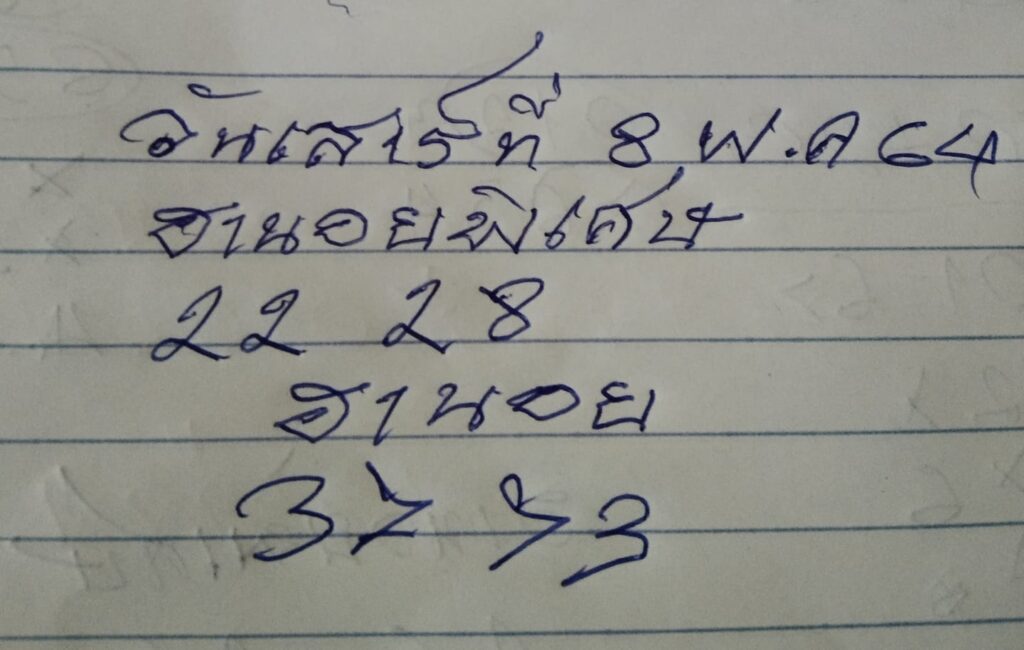 วันเสาร์ที่ 8 พ.ค 64
ฮานอยพิเศษ
22 28
ฮานอย
37 73